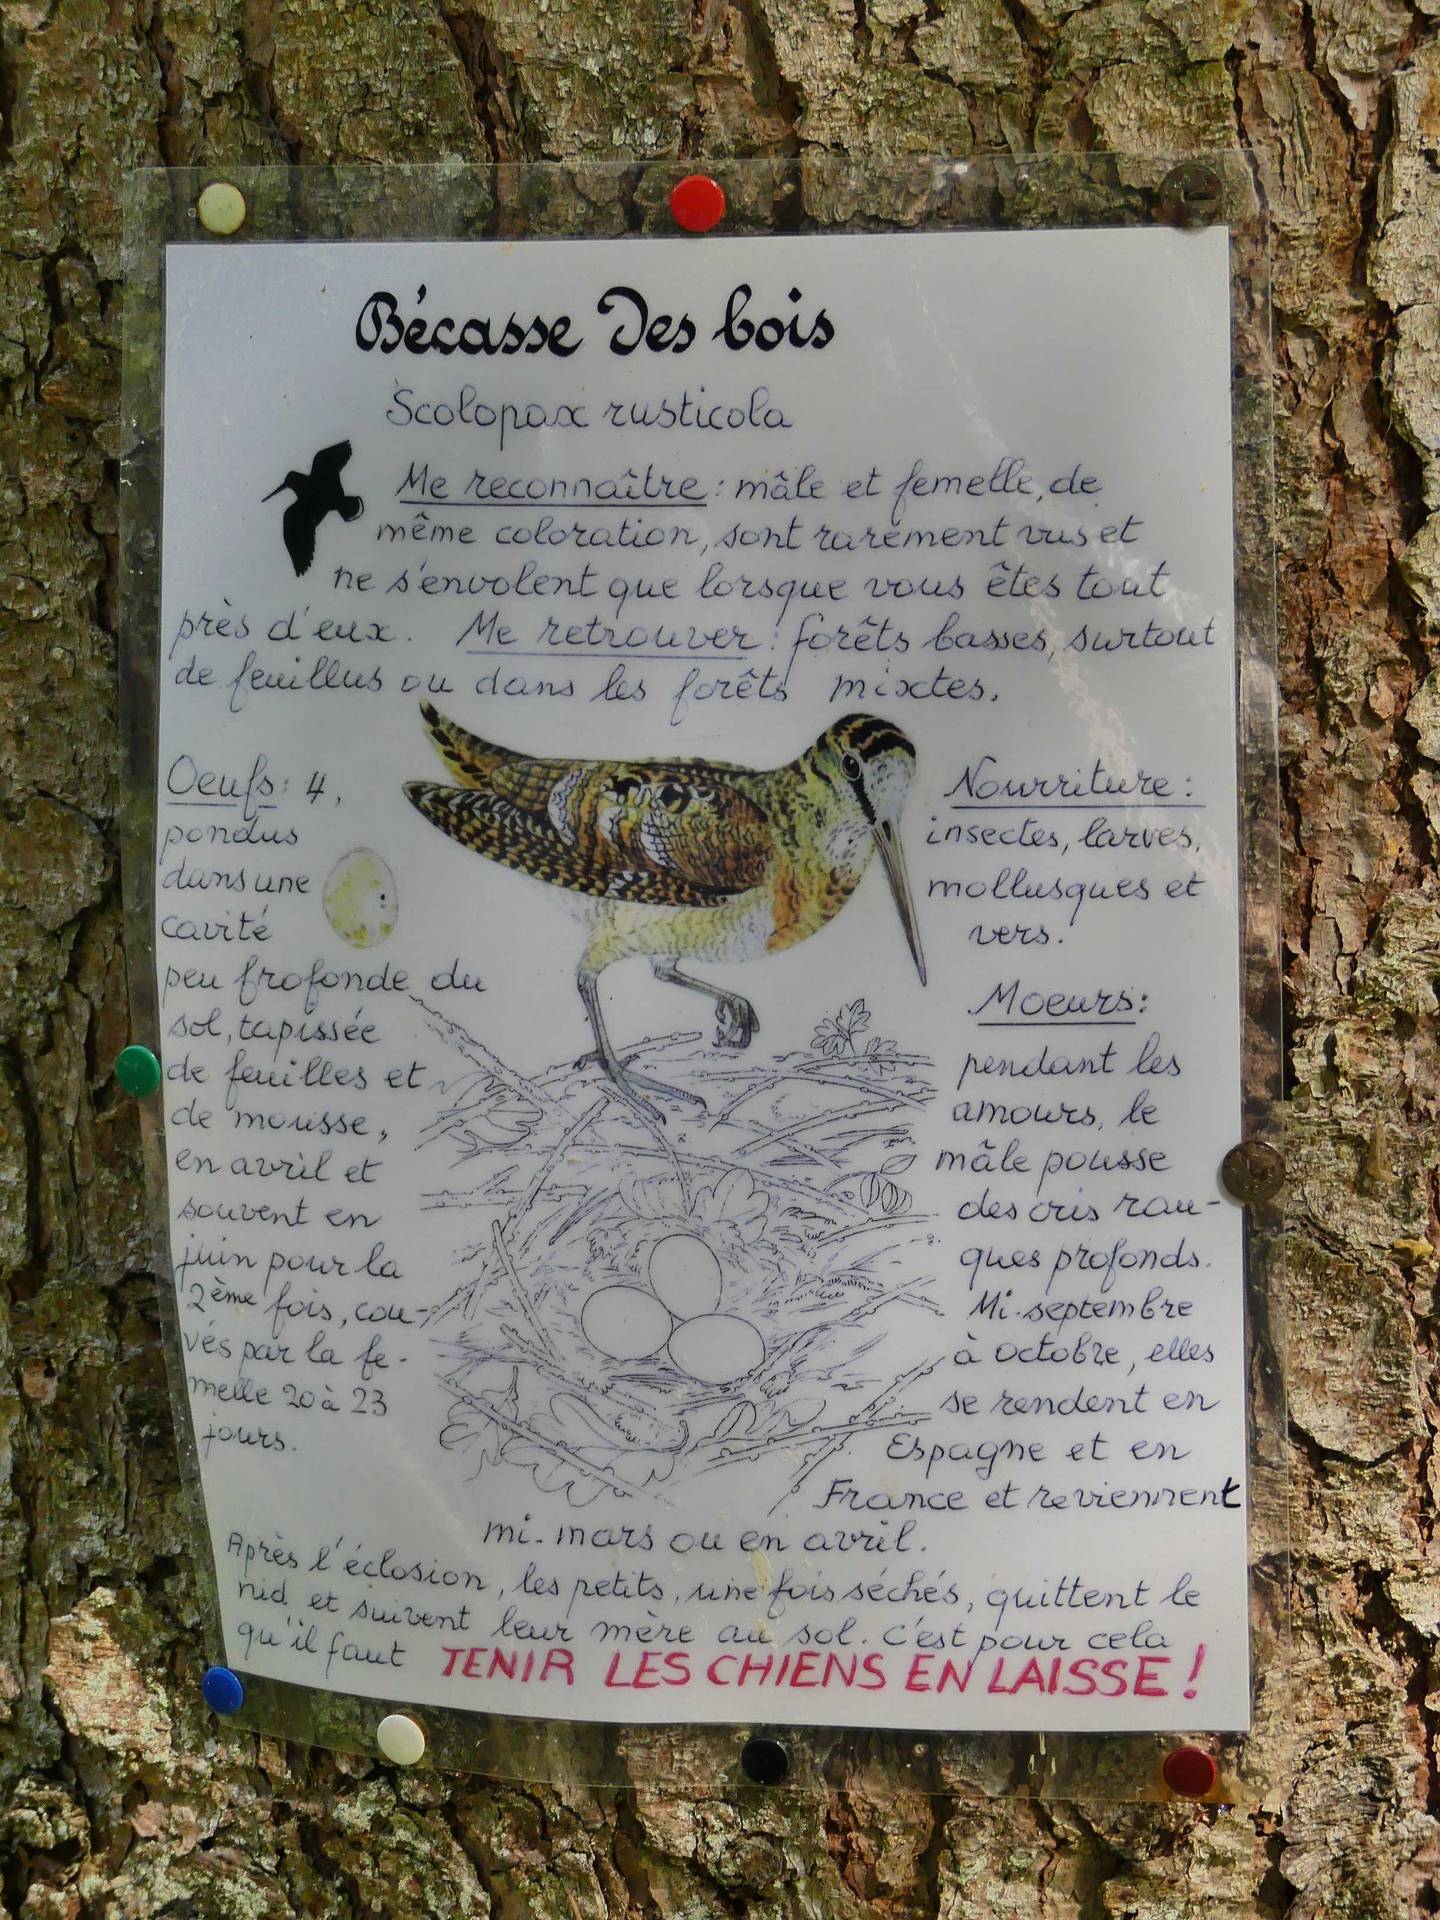 Bécasse Des bois
Scolopax rusticola
Me reconnaître : mâle et femelle, de
même coloration, sont rarement vus et
ne s'envolent que lorsque vous êtes tout
près d'eux. Me retrouver : forêts basses, surtout
de feuillus ou dans les forêts mixtes.
Oeufs : 4,
pondus
dans une
cavité
peu frofonde du
sol, tapissée
de feuilles et
de mousse,
en avril et
souvent en
juin pour la
2ème fois, cou-
vés par la fe-
melle 20 à 23
jours.
Nourriture :
insectes, larves,
mollusques et
vers.
Moeurs :
pendant les
amours, le
mâle pousse
des cris rau-
ques profonds.
Mi-septembre
à octobre, elles
se rendent en
Espagne et en
France et reviennent
mi-mars ou en avril.
Après l'éclosion, les petits, une fois séchés, quittent le
nid et suivent leur mère au sol. C'est pour cela
qu'il faut TENIR LES CHIENS EN LAISSE !